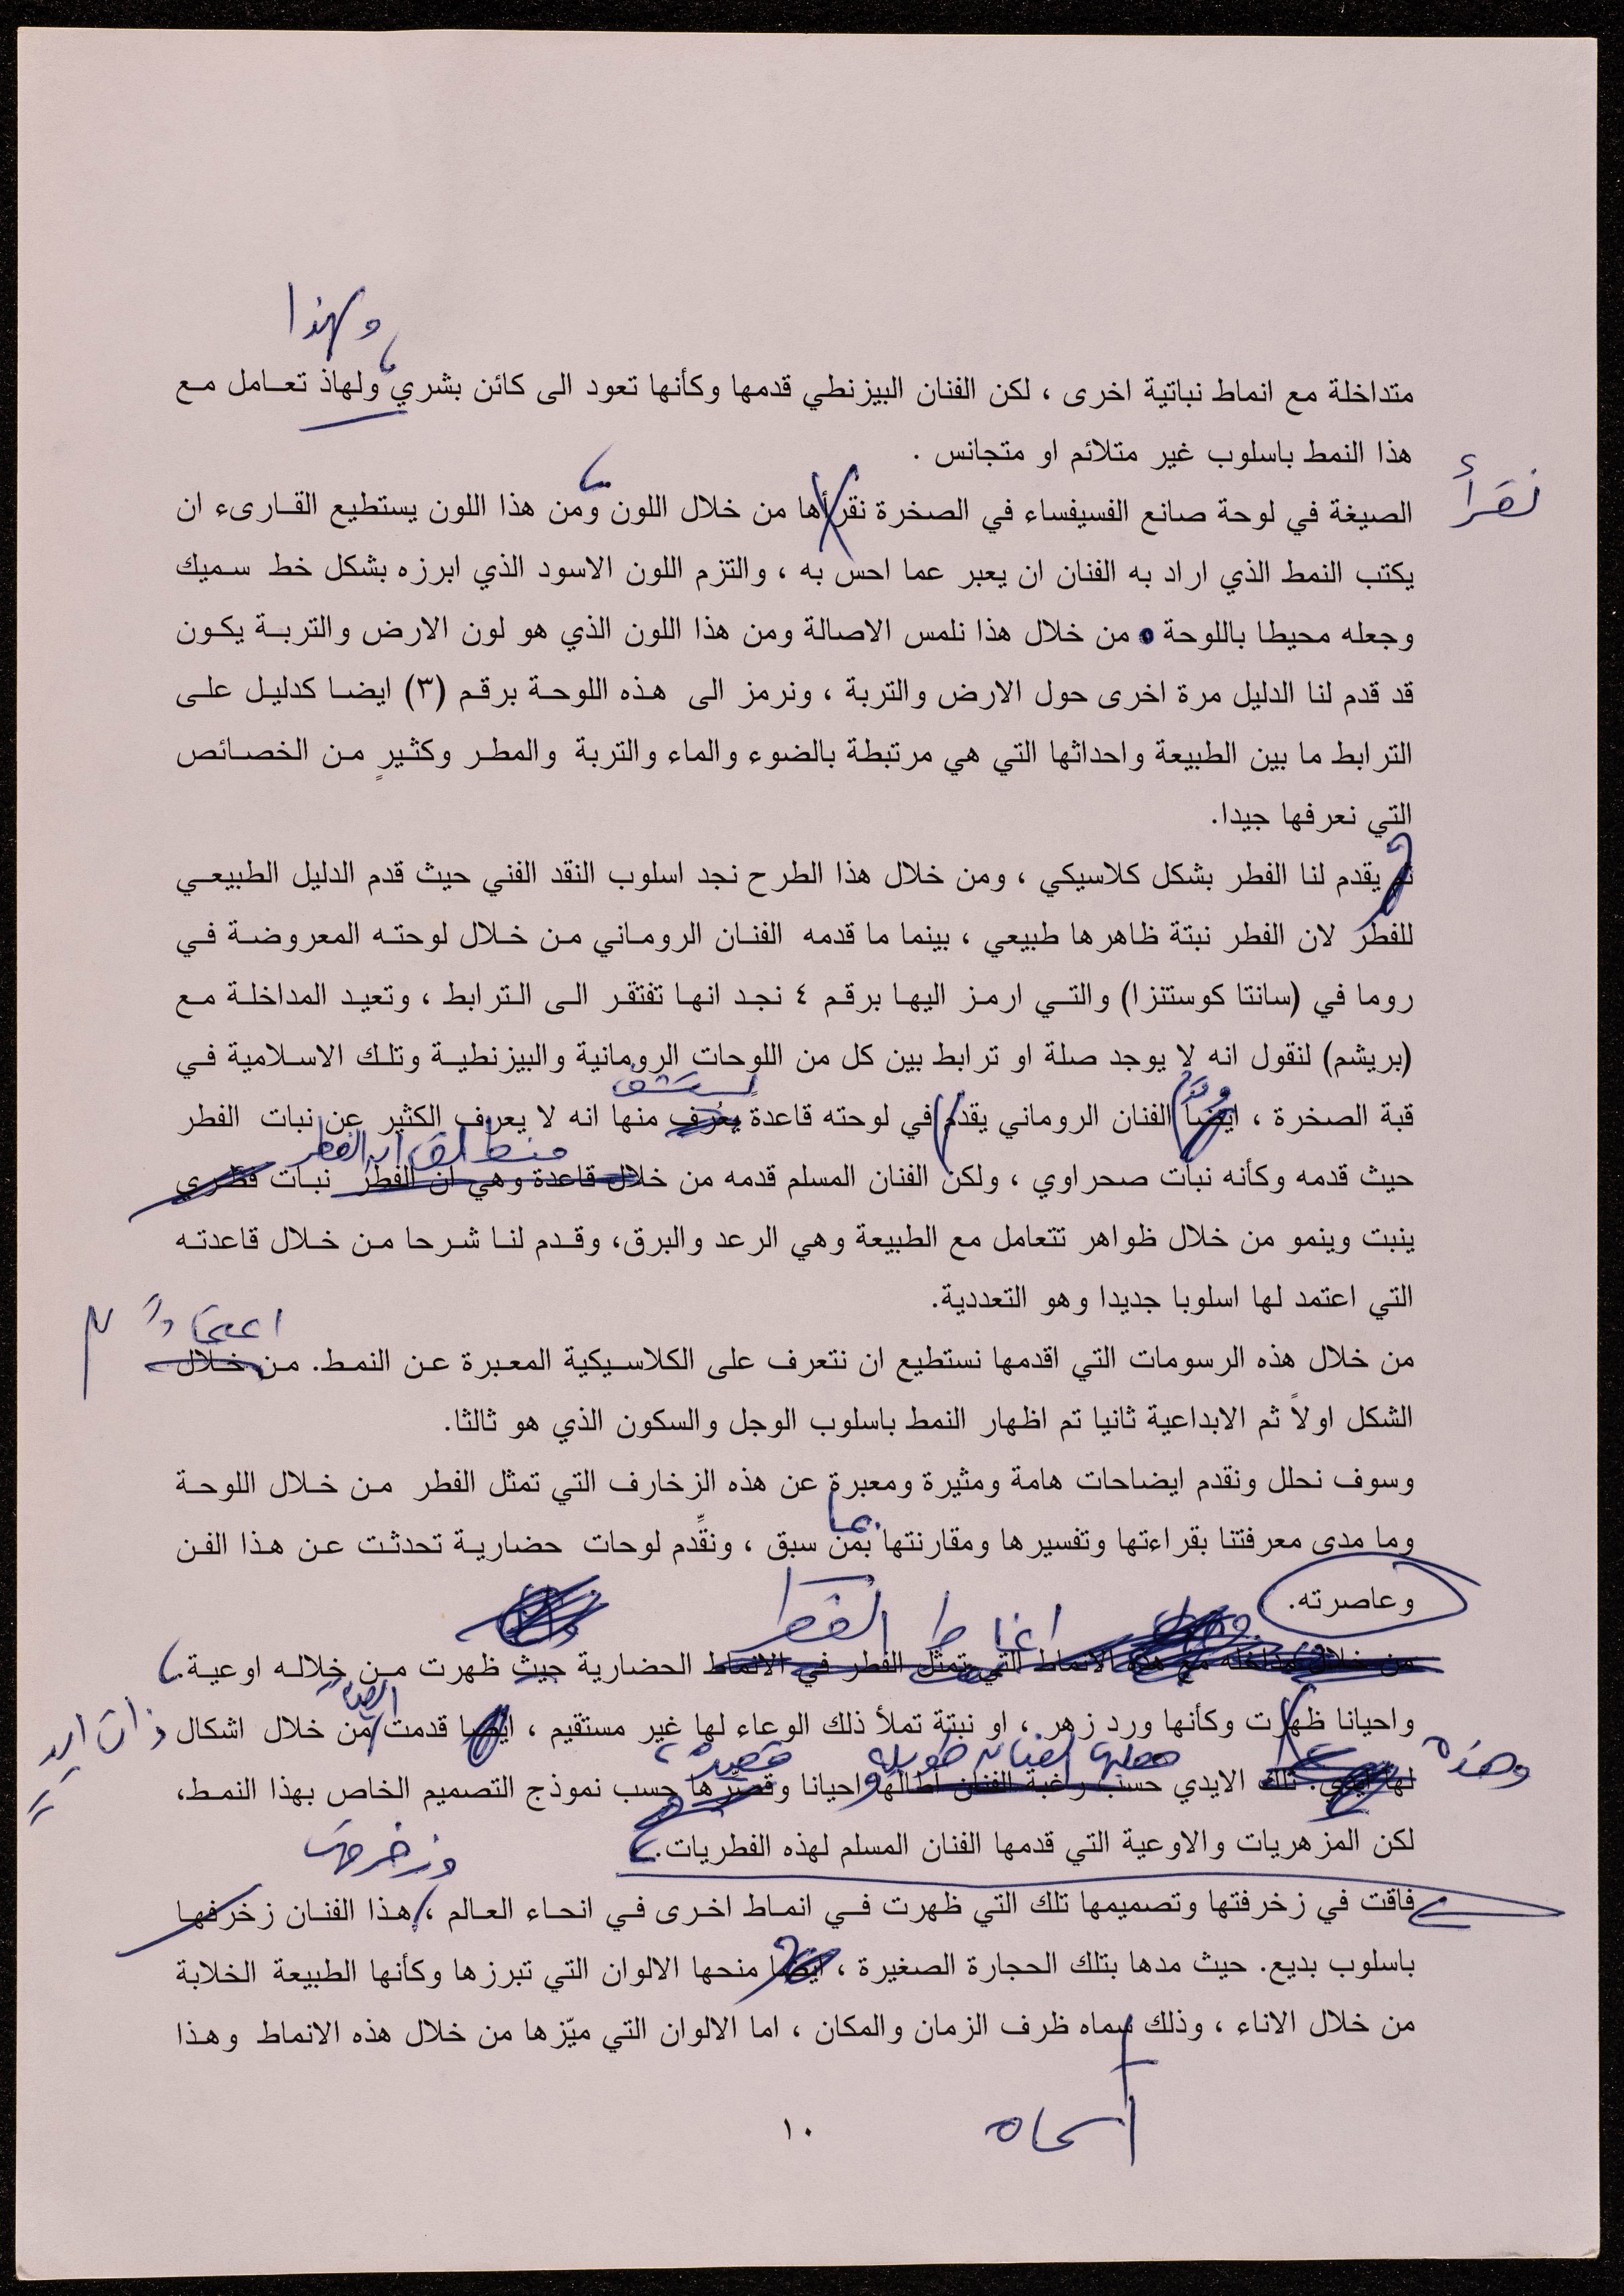 ولهذا
متداخلة مع انماط نباتية اخرى ، لكن الفنان البيزنطي قدمها وكأنها تعود الى كائن بشري ولهاذ تعامل مع
هذا النمط باسلوب غير متلائم او متجانس .
نقرأ
الصيغة في لوحة صانع الفسيفساء في الصخرة نقرأها من خلال اللون ومن هذا اللون يستطيع القارىء ان
يكتب النمط الذي اراد به الفنان ان يعبر عما احس به ، والتزم اللون الاسود الذي ابرزه بشكل خط سميك
وجعله محيطا باللوحة . من خلال هذا نلمس الاصالة ومن هذا اللون الذي هو لون الارض والتربة يكون
قد قدم لنا الدليل مرة اخرى حول الارض والتربة ، ونرمز الى هذه اللوحة برقم (٣) ايضا كدليل على
الترابط ما بين الطبيعة واحداثها التي هي مرتبطة بالضوء والماء والتربة والمطر وكثيرٍ من الخصائص
التي نعرفها جيدا.
ثم يقدم لنا الفطر بشكل كلاسيكي ، ومن خلال هذا الطرح نجد اسلوب النقد الفني حيث قدم الدليل الطبيعي
للفطر لان الفطر نبتة ظاهرها طبيعي ، بينما ما قدمه الفنان الروماني من خلال لوحته المعروضة في
روما في (سانتا كوستنزا) والتي ارمز اليها برقم ٤ نجد انها تفتقر الى الترابط ، وتعيد المداخلة مع
(بريشم) لنقول انه لا يوجد صلة او ترابط بين كل من اللوحات الرومانية والبيزنطية وتلك الاسلامية في
وقد يستشف
قبة الصخرة ، ايضاً الفنان الروماني يقدم في لوحته قاعدة يعُرف منها انه لا يعرف الكثير عن نبات الفطر
منطلق ان الفطر
حيث قدمه وكأنه نبات صحراوي ، ولكن الفنان المسلم قدمه من خلال قاعدة وهي ان الفطر نبات فطري
ينبت وينمو من خلال ظواهر تتعامل مع الطبيعة وهي الرعد والبرق، وقدم لنا شرحا من خلال قاعدته
التي اعتمد لها اسلوبا جديدا وهو التعددية.
اعتماداً
من خلال هذه الرسومات التي اقدمها نستطيع ان نتعرف على الكلاسيكية المعبرة عن النمط. من خلال
الشكل اولاً ثم الابداعية ثانيا تم اظهار النمط باسلوب الوجل والسكون الذي هو ثالثا.
وسوف نحلل ونقدم ايضاحات هامة ومثيرة ومعبرة عن هذه الزخارف التي تمثل الفطر من خلال اللوحة
بما
وما مدى معرفتنا بقراءتها وتفسيرها ومقارنتها بمن سبق ، ونقِّدم لوحات حضارية تحدثت عن هذا الفن
وعاصرته.
انماط الفطر
من خلال مداخله مع هذه الانماط التي تمثل الفطر في الانماط الحضارية حيث ظهرت من خلاله اوعية.
ايضاً
واحيانا ظهرت وكأنها ورد زهر ، او نبتة تملأ ذلك الوعاء لها غير مستقيم ، ايضا قدمت من خلال اشكال
وهذه جعلها الفنان طويلة قصيرة
لها ايدي. تلك الايدي حسب رغبة الفنان اطالها احيانا وقصّرها حسب نموذج التصميم الخاص بهذا النمط،
لكن المزهريات والاوعية التي قدمها الفنان المسلم لهذه الفطريات.
وزخرفت
فاقت في زخرفتها وتصميمها تلك التي ظهرت في انماط اخرى في انحاء العالم ، هذا الفنان زخرفها
باسلوب بديع. حيث مدها بتلك الحجارة الصغيرة ، ايضا منحها الالوان التي تبرزها وكأنها الطبيعة الخلابة
من خلال الاناء ، وذلك سماه ظرف الزمان والمكان ، اما الالوان التي ميّزها من خلال هذه الانماط وهذا
اسماه
١٠